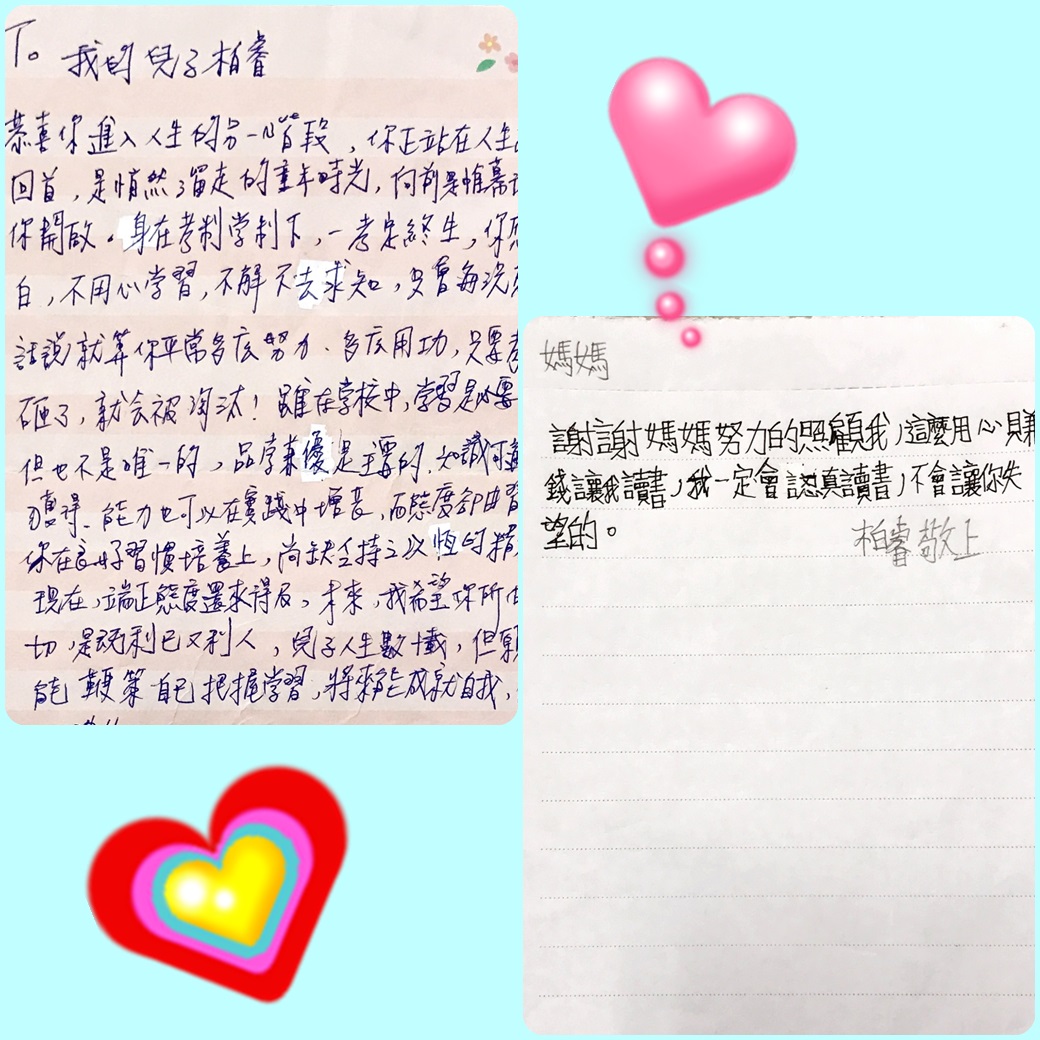 To 我的兒子柏睿
恭喜你進入人生的另一階段，你正站在人生
回首，是悄然溜走的童年時光，向前是帷幕
你開啟。身在考制學制下，一考定終生，你
白，不用心學習，不解不去求知，只會每況
話說就算你平常多底努力、多底用功，只要考
砸了，就会被淘汰！雖在学校中，學習是必要
但也不是唯一的，品学兼優是主要的，知識可
獲得、能力也可以在實踐中增長，而態度卻由
你在良好習慣培養上，尚缺乏持之以恆的精
現在，端正態度還來得及，未來，我希望你所
切，是既利已又利人，兒子人生數十載，但願
能鞭策自已把握學習，將來能成就自我，
媽媽
謝謝媽媽努力的照顧我，這麼用心賺
錢讓我讀書，我一定會認真讀書，不會讓你失
望的。
柏睿敬上